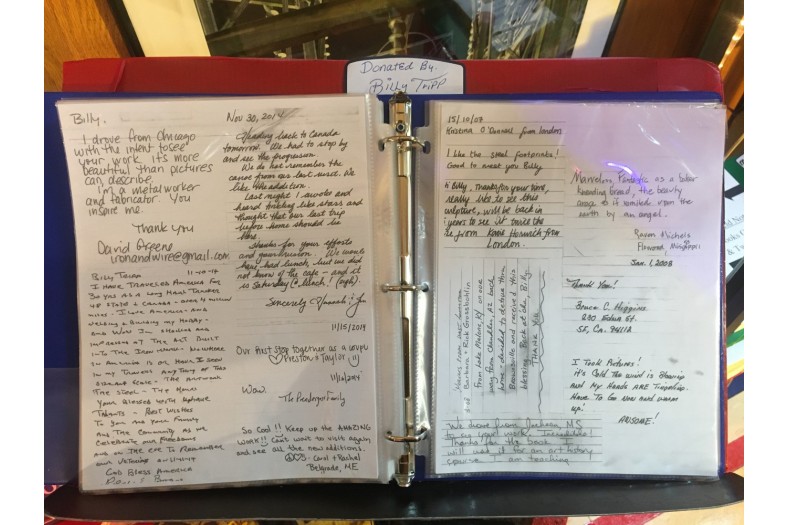 Donated By.
Billy Tripp
Billy,
I drove from Chicago
with the intent to see
your work, it's more
beautiful than pictures
can describe.
I'm a metalworker
and fabricator. You
inspire me.
Thank you
David Greene
ironandwire@gmail.com
Billy Tripp 11-10-14
I Have Traveled America For
50 yrs as a Long Haul Trucker
48 State & Canada - over 4 million
miles - I Love America - and
Welding & Building my Hobby -
and Wow Im
Impressed at the Art Built
Into The Iron Work. No where
in America Is or Have I seen
in my Travels Any Thing of This
Size and Scale - The Artwork
The Steel - The Hours
Your Blessed with Unique
Talents - Best Wishes
To you and Your Family
and The Community as we
Celebrate our Freedoms
and on the eve To Remember
our Veterans 11-11-14
God Bless America
Nov 30, 2014
Heading back to Canada
tomorrow. We had to stop by
and see the progression.
We do not remember the
canoe from our last visit. We
like the addition.
Last night I awoke and
heard something like stars and
thought that our last trip
before home should be
here.
Thanks for your efforts
and your vision. We would
have had lunch but we did
not know of the cafe - and it
is Saturday (no lunch!) (sigh)
Sincerely
11/15/2014
Our first stop together as a couple
Preston & Taylor (11)
11/16/2014
Wow.
The Pendergast Family
So Cool!! Keep up the AMAZING
WORK!! Can't wait to visit again
and see all the new additions.
Carol + Rachel
Belgrade, ME
15/10/07
Kristina O'Donnell from London
I like the small footprints!
Good to meet you Billy
Hi Billy, Thanks for your time,
really like to see this
sculpture, will be back in
years to see it twice the
size from Karol Horwich from
London.
Waves from AZ
of Barbara & Rick Grossnicklin
From Lake Malone, KY on our
way from Chandler, AZ back
home - decided to detour thru
Brownsville and received this
blessing. Best of the, Billy.
THANK YOU
We drove from Jackson, MS
to see your work. Incredible!
Thanks for the book. I
will use it for an art history
course I am teaching
Marvelous, Fantastic as a
the beauty
arose as if smiled upon the
earth by an angel.
Raven Michels
Flowood, Mississippi
Jan. 1, 2008
Thank You!
Bruce C. Higgins
230 Eddy St.
SF, Ca. 94112
I Took Pictures!
It's Cold. The wind is Blowing
and My Hands ARE Trembling.
Have To Go now and warm
up.
AWSOME!